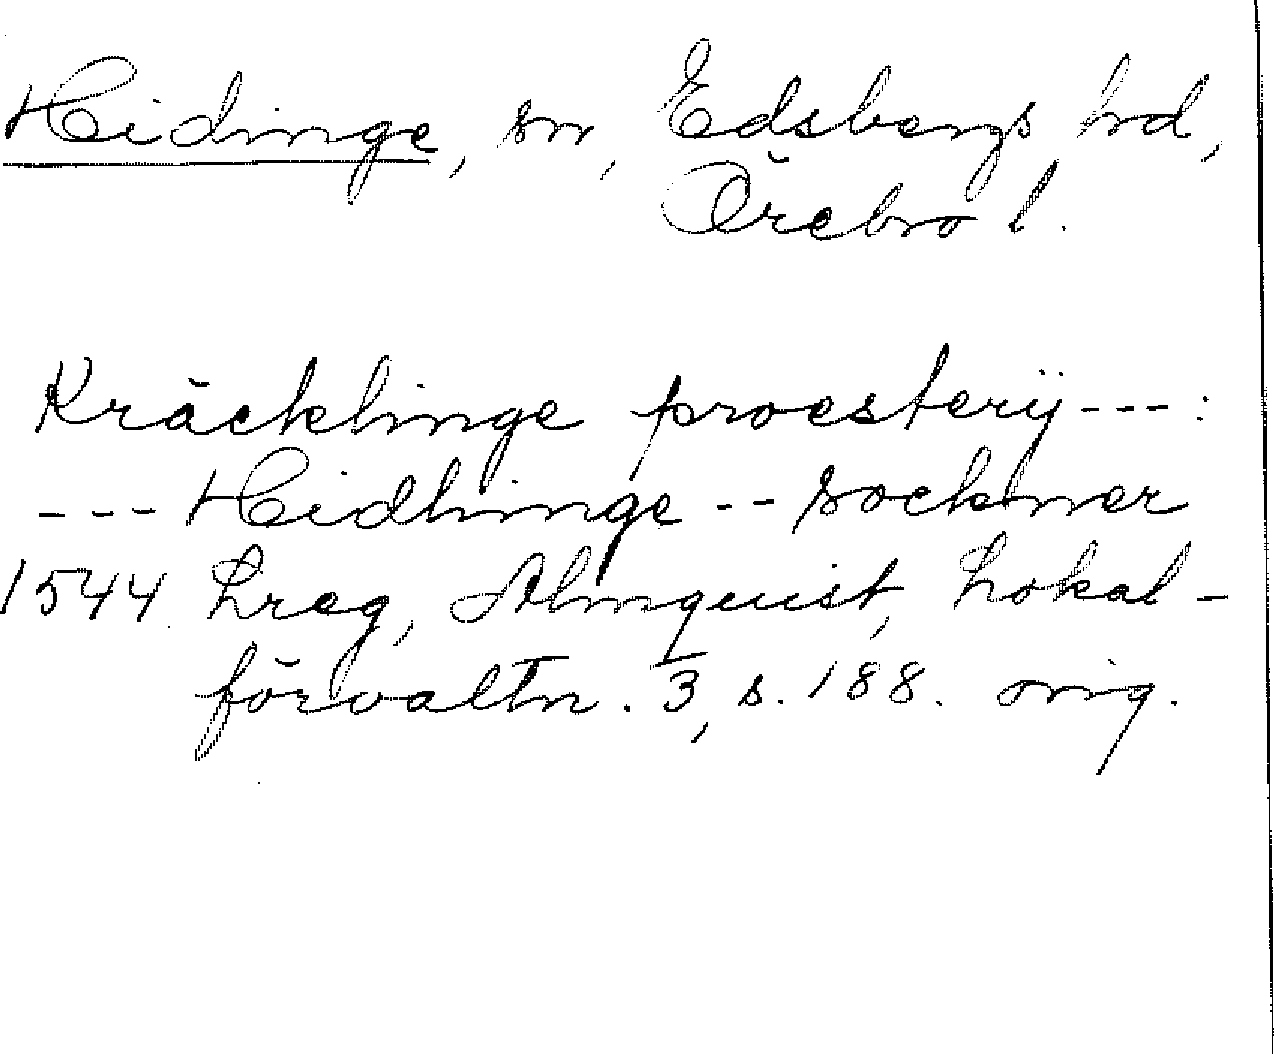 Heidinge, sn, Edsbergs hd,
Örebro l.
Kräcklinge proesterÿ---:
--- Heidhinge -- sockner
1544 Lreg, Almquist, Lokal-
förvaltn. 3, s. 188. orig.